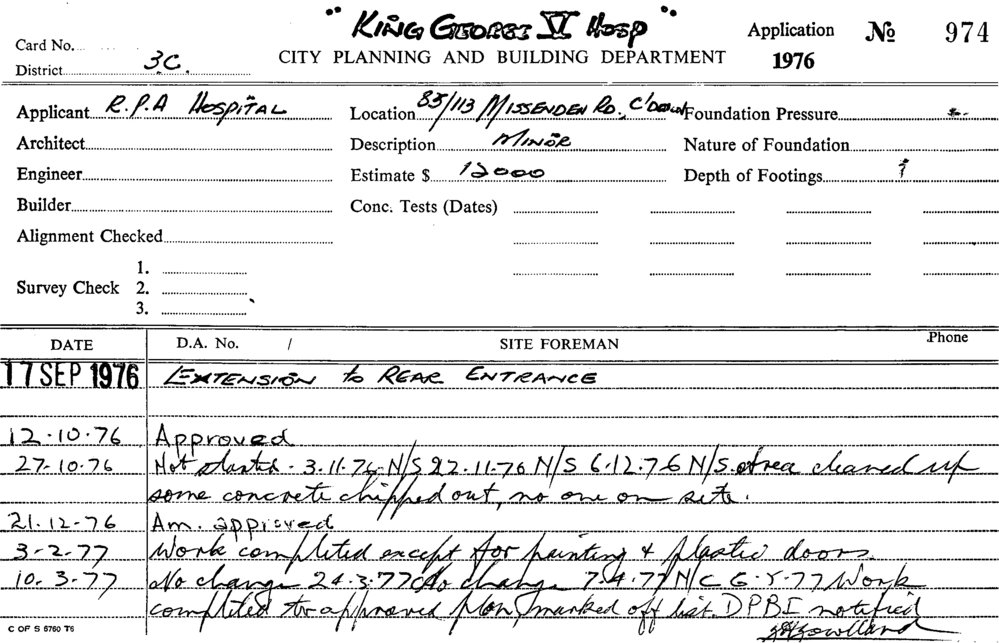 " KING GEORGE V HOSP "
Card No. Application No 974
CITY PLANNING AND BUILDING DEPARTMENT
District 3C. 1976
Applicant R.P.A HOSPITAL Location 85/113 MISSENDEN RD., C'DOWN Foundation Pressure
Architect Description MINOR Nature of Foundation
Engineer Estimate $ 12000 Depth of Footings
Builder Conc. Tests (Dates)
Alignment Checked
1.
Survey Check 2.
3.
DATE D.A. No. / SITE FOREMAN Phone
17 SEP 1976 EXTENSION to REAR ENTRANCE
12.10.76 Approved
27.10.76 Not started - 3.11.76 N/S 22.11.76 N/S 6.12.76 N/S. Area cleaned up
some concrete chipped out, no one on site.
21.12.76 Am. approved
3-2-77 Work completed except for painting & plastic doors.
10.3.77 No change 24.3.77 No change 7.4.77 N/C 6.5.77 Work
completed to approved plan, marked off list. DPBI notified
C OF S 5760 T6